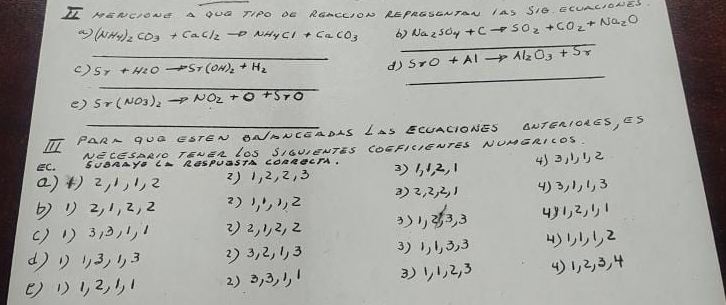 II MENCIONE A QUE TIPO DE REACCION REPRESENTAN LAS SIG. ECUACIONES.
a) (NH4)2 CO3 + CaCl2 → NH4Cl + CaCO3 b) Na2SO4 + C → SO2 + CO2 + Na2O
c) Sr + H2O → Sr(OH)2 + H2 d) SrO + Al → Al2O3 + Sr
e) Sr(NO3)2 → NO2 + O + SrO
III PARA QUE ESTEN BALANCEADAS LAS ECUACIONES ANTERIORES, ES
NECESARIO TENER LOS SIGUIENTES COEFICIENTES NUMERICOS.
EC. SUBRAYE LA RESPUESTA CORRECTA.
a) 1) 2,1,1,2 2) 1,2,2,3 3) 1,1,2,1 4) 3,1,1,2
b) 1) 2,1,2,2 2) 1,1,1,2 3) 2,2,2,1 4) 3,1,1,3
c) 1) 3,3,1,1 2) 2,1,2,2 3) 1,2,3,3 4) 1,2,1,1
d) 1) 1,3,1,3 2) 3,2,1,3 3) 1,1,3,3 4) 1,1,1,2
e) 1) 1,2,1,1 2) 3,3,1,1 3) 1,1,2,3 4) 1,2,3,4